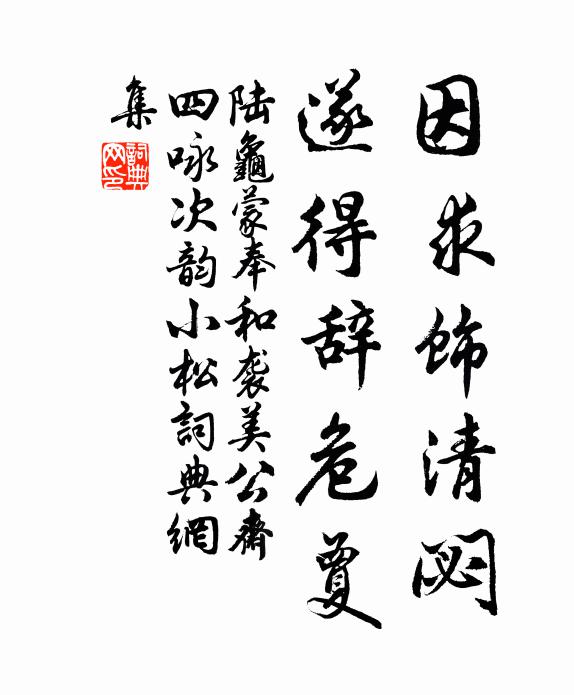 因求飾清閟
遂得辞危夏
陆龜蒙奉和袭美公齋
四咏次韵小松詞典網
集
詞典
网印